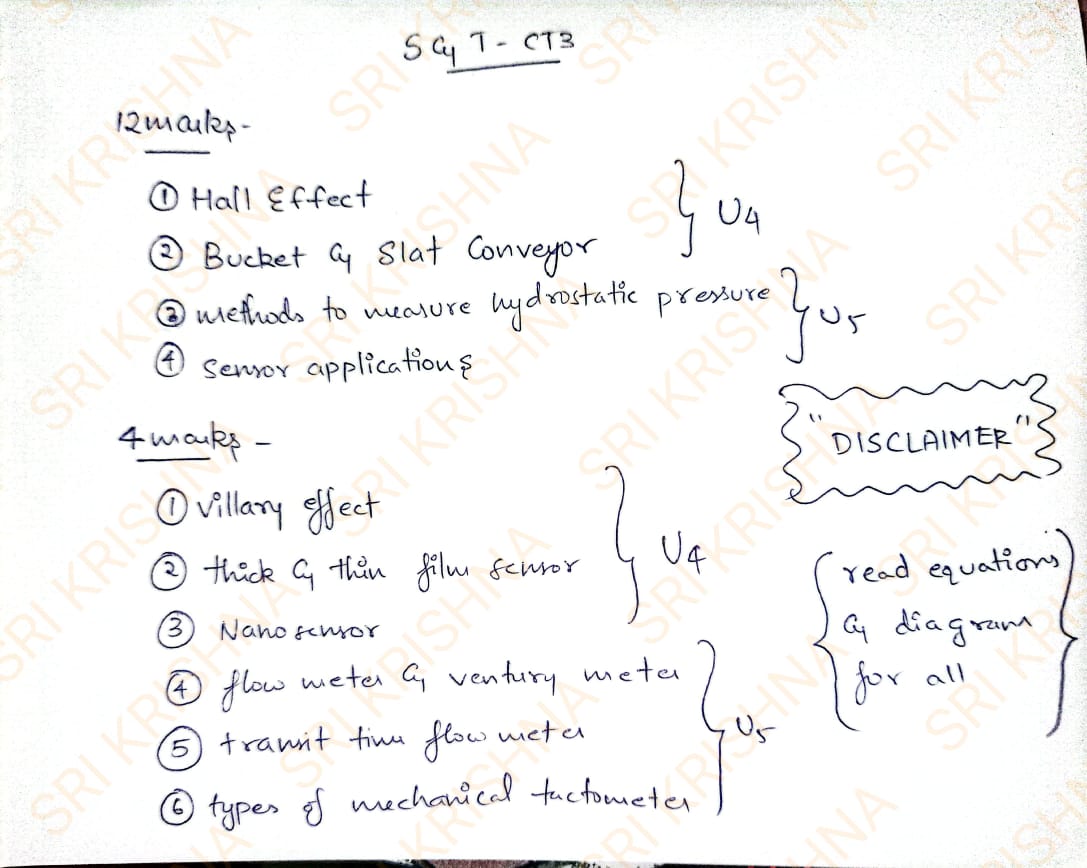 S & T - CT3
12 marks -
① Hall Effect
② Bucket & Slat Conveyor
} U4
③ methods to measure hydrostatic pressure
④ Sensor applications
} U5
4 marks -
① Villary effect
② thick & thin film sensor
③ Nano sensor
} U4
④ flow meter & ventury meter
⑤ transit time flow meter
⑥ types of mechanical tactometer
} U5
"DISCLAIMER"
{ read equations
& diagram
for all }
SRI KRISHNA